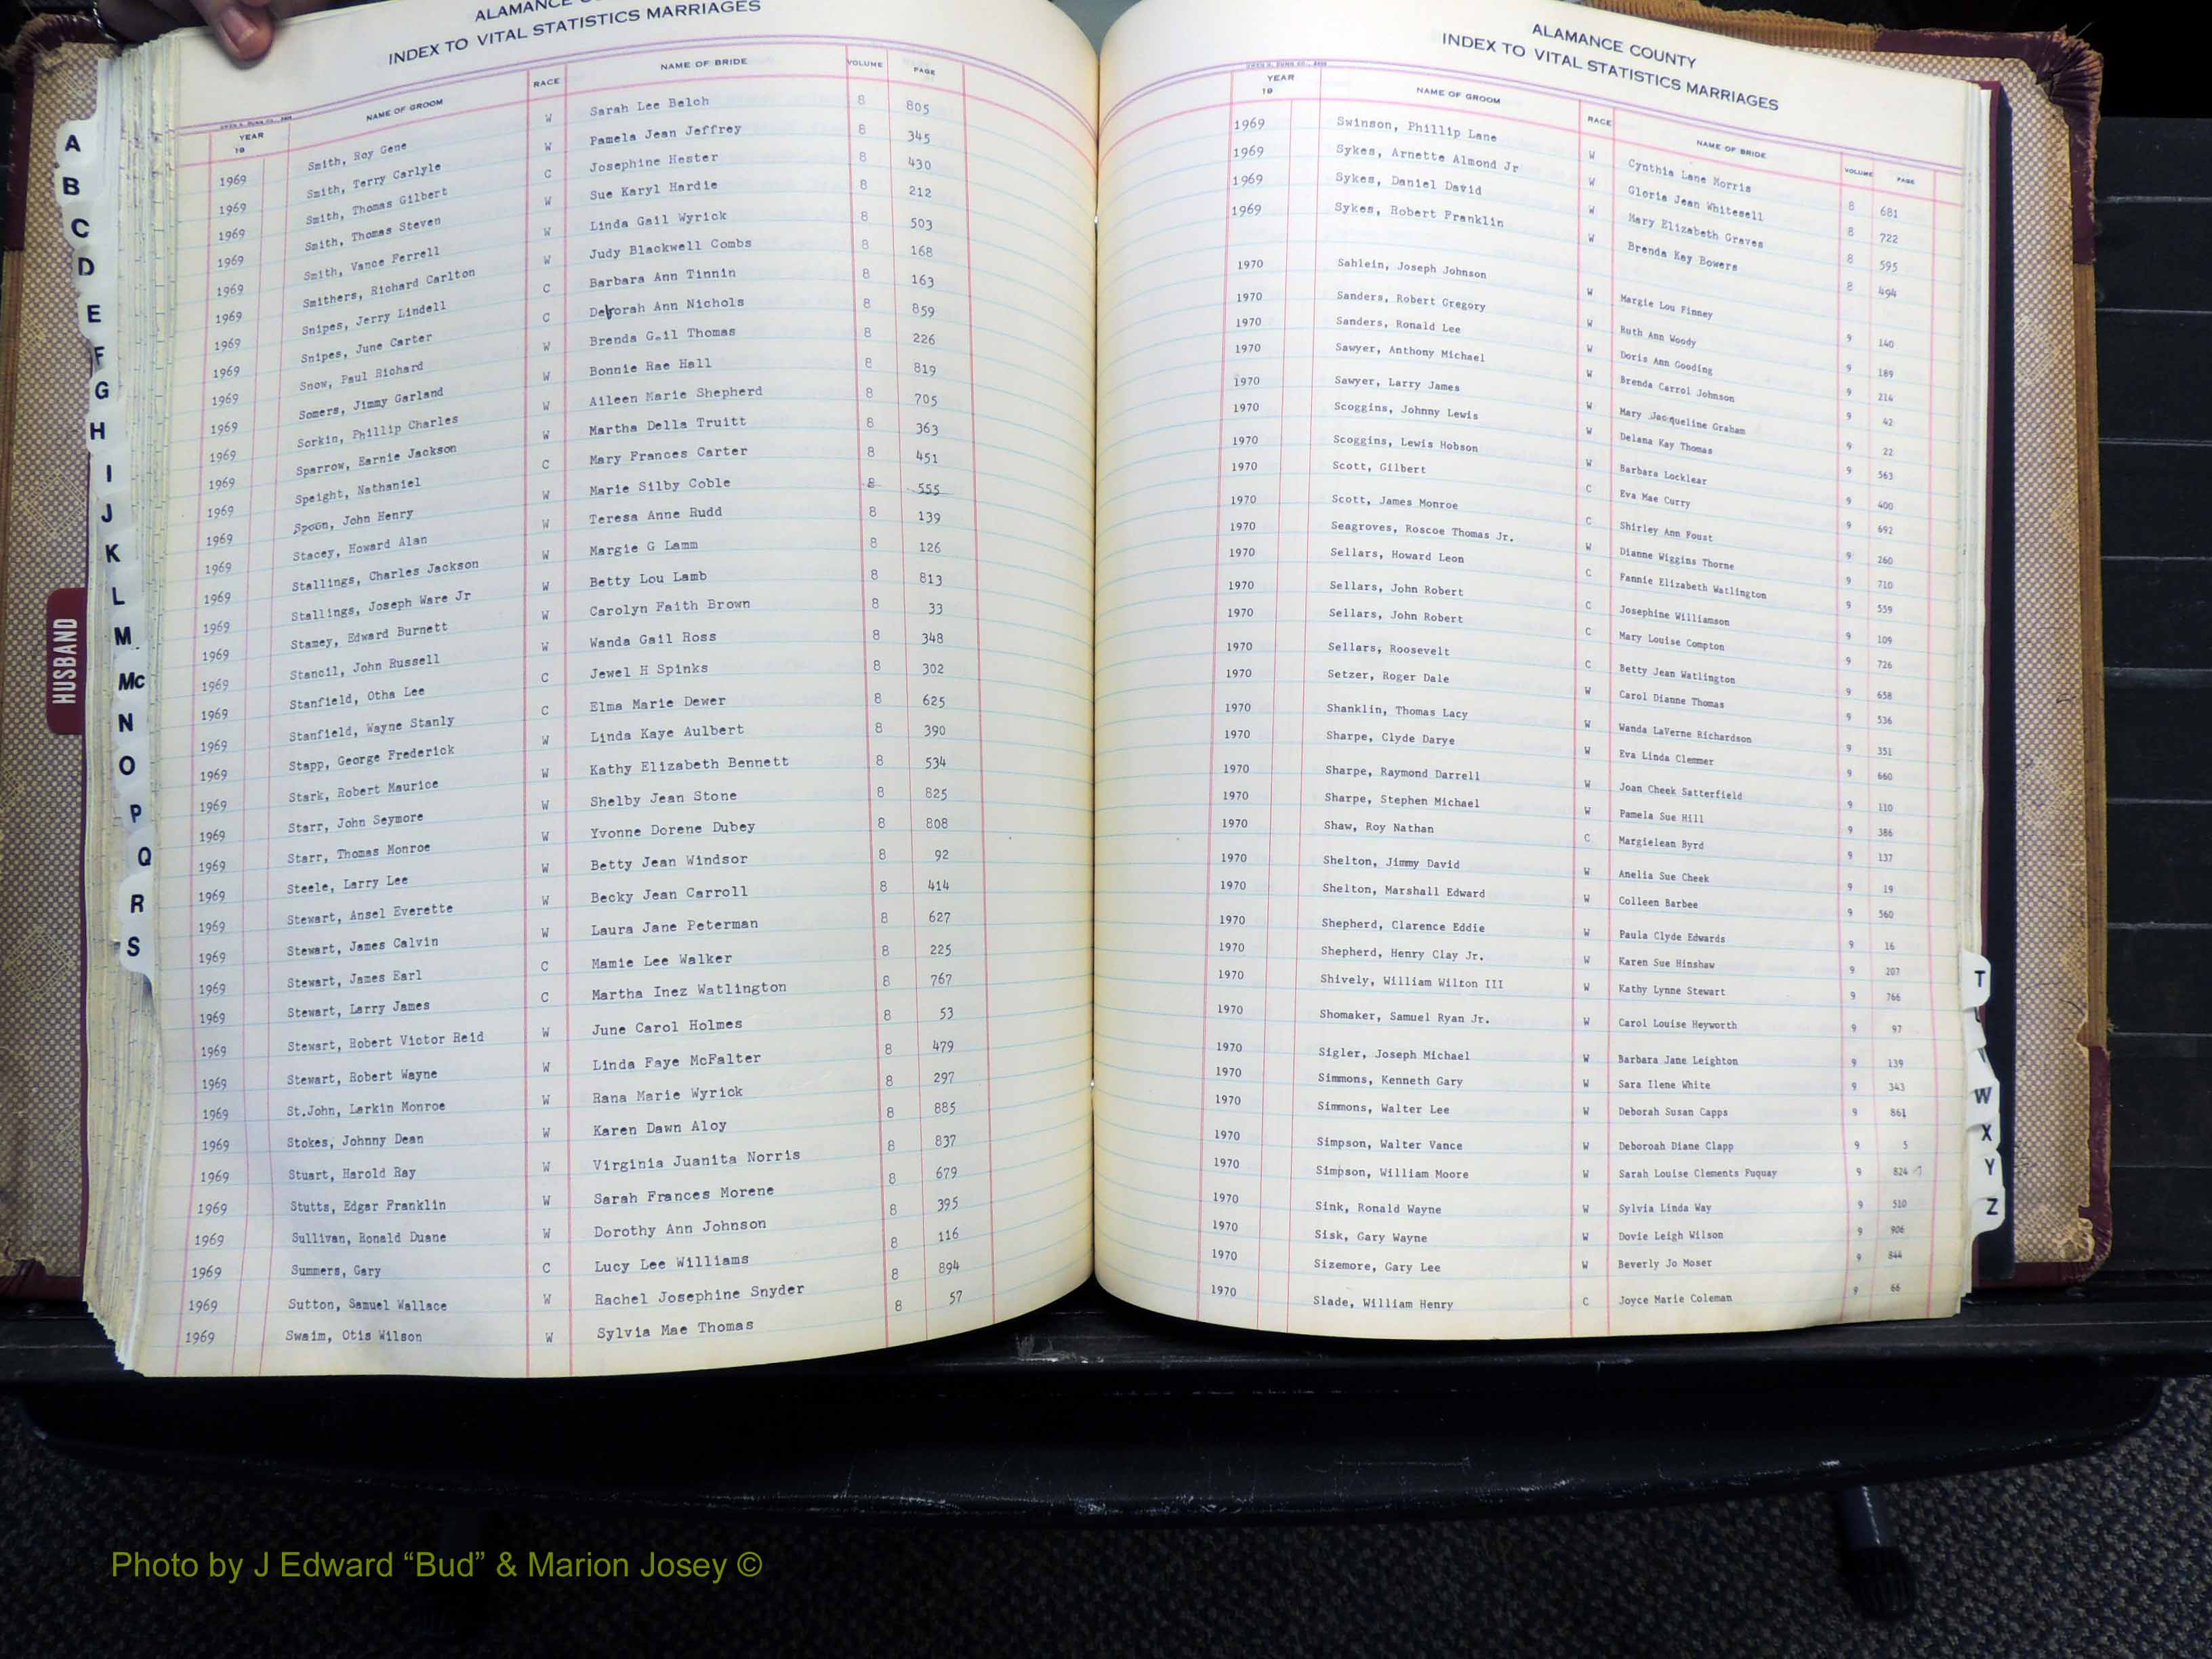 ALAMANCE
INDEX TO VITAL STATISTICS MARRIAGES
YEAR 19 NAME OF GROOM RACE NAME OF BRIDE VOLUME PAGE
1969 Smith, Roy Gene W Sarah Lee Belch 8 805
1969 Smith, Terry Carlyle W Pamela Jean Jeffrey 8 345
1969 Smith, Thomas Gilbert C Josephine Hester 8 430
1969 Smith, Thomas Steven W Sue Karyl Hardie 8 212
1969 Smith, Vance Ferrell W Linda Gail Wyrick 8 503
1969 Smithers, Richard Carlton W Judy Blackwell Combs 8 168
1969 Snipes, Jerry Lindell C Barbara Ann Tinnin 8 163
1969 Snipes, June Carter C Deborah Ann Nichols 8 859
1969 Snow, Paul Richard W Brenda Gail Thomas 8 226
1969 Somers, Jimmy Garland W Bonnie Rae Hall 8 819
1969 Sorkin, Phillip Charles W Aileen Marie Shepherd 8 705
1969 Sparrow, Earnie Jackson W Martha Della Truitt 8 363
1969 Speight, Nathaniel C Mary Frances Carter 8 451
1969 Spoon, John Henry W Marie Silby Coble 8 555
1969 Stacey, Howard Alan W Teresa Anne Rudd 8 139
1969 Stallings, Charles Jackson W Margie G Lamm 8 126
1969 Stallings, Joseph Ware Jr W Betty Lou Lamb 8 813
1969 Stamey, Edward Burnett W Carolyn Faith Brown 8 33
1969 Stancil, John Russell W Wanda Gail Ross 8 348
1969 Stanfield, Otha Lee C Jewel H Spinks 8 302
1969 Stanfield, Wayne Stanly C Elma Marie Dewer 8 625
1969 Stapp, George Frederick W Linda Kaye Aulbert 8 390
1969 Stark, Robert Maurice W Kathy Elizabeth Bennett 8 534
1969 Starr, John Seymore W Shelby Jean Stone 8 825
1969 Starr, Thomas Monroe W Yvonne Dorene Dubey 8 808
1969 Steele, Larry Lee W Betty Jean Windsor 8 92
1969 Stewart, Ansel Everette W Becky Jean Carroll 8 414
1969 Stewart, James Calvin W Laura Jane Peterman 8 627
1969 Stewart, James Earl C Mamie Lee Walker 8 225
1969 Stewart, Larry James C Martha Inez Watlington 8 767
1969 Stewart, Robert Victor Reid W June Carol Holmes 8 53
1969 Stewart, Robert Wayne W Linda Faye McFalter 8 479
1969 St.John, Larkin Monroe W Rana Marie Wyrick 8 297
1969 Stokes, Johnny Dean W Karen Dawn Aloy 8 885
1969 Stuart, Harold Ray W Virginia Juanita Norris 8 837
1969 Stutts, Edgar Franklin W Sarah Frances Morene 8 679
1969 Sullivan, Ronald Duane W Dorothy Ann Johnson 8 395
1969 Summers, Gary C Lucy Lee Williams 8 116
1969 Sutton, Samuel Wallace W Rachel Josephine Snyder 8 894
1969 Swaim, Otis Wilson W Sylvia Mae Thomas 8 57
ALAMANCE COUNTY
INDEX TO VITAL STATISTICS MARRIAGES
YEAR 19 NAME OF GROOM RACE NAME OF BRIDE VOLUME PAGE
1969 Swinson, Phillip Lane W Cynthia Lane Morris 8 681
1969 Sykes, Arnette Almond Jr W Gloria Jean Whitesell 8 722
1969 Sykes, Daniel David W Mary Elizabeth Graves 8 595
1969 Sykes, Robert Franklin W Brenda Kay Bowers 8 494
1970 Sahlein, Joseph Johnson W Margie Lou Finney 9 140
1970 Sanders, Robert Gregory W Ruth Ann Woody 9 189
1970 Sanders, Ronald Lee W Doris Ann Gooding 9 224
1970 Sawyer, Anthony Michael W Brenda Carrol Johnson 9 42
1970 Sawyer, Larry James W Mary Jacqueline Graham 9 22
1970 Scoggins, Johnny Lewis W Delana Kay Thomas 9 563
1970 Scoggins, Lewis Hobson W Barbara Locklear 9 400
1970 Scott, Gilbert C Eva Mae Curry 9 692
1970 Scott, James Monroe C Shirley Ann Foust 9 260
1970 Seagroves, Roscoe Thomas Jr. W Dianne Wiggins Thorne 9 710
1970 Sellars, Howard Leon C Fannie Elizabeth Watlington 9 559
1970 Sellars, John Robert C Josephine Williamson 9 109
1970 Sellars, John Robert C Mary Louise Compton 9 726
1970 Sellars, Roosevelt C Betty Jean Watlington 9 658
1970 Setzer, Roger Dale W Carol Dianne Thomas 9 536
1970 Shanklin, Thomas Lacy W Wanda LaVerne Richardson 9 351
1970 Sharpe, Clyde Darye W Eva Linda Clemmer 9 660
1970 Sharpe, Raymond Darrell W Joan Cheek Satterfield 9 110
1970 Sharpe, Stephen Michael W Pamela Sue Hill 9 386
1970 Shaw, Roy Nathan C Margielean Byrd 9 137
1970 Shelton, Jimmy David W Anelia Sue Cheek 9 19
1970 Shelton, Marshall Edward W Colleen Barbee 9 560
1970 Shepherd, Clarence Eddie W Paula Clyde Edwards 9 16
1970 Shepherd, Henry Clay Jr. W Karen Sue Hinshaw 9 207
1970 Shively, William Wilton III W Kathy Lynne Stewart 9 766
1970 Shomaker, Samuel Ryan Jr. W Carol Louise Heyworth 9 97
1970 Sigler, Joseph Michael W Barbara Jane Leighton 9 139
1970 Simmons, Kenneth Gary W Sara Ilene White 9 343
1970 Simmons, Walter Lee W Deborah Susan Capps 9 861
1970 Simpson, Walter Vance W Deboroah Diane Clapp 9 5
1970 Simpson, William Moore W Sarah Louise Clements Fuquay 9 824
1970 Sink, Ronald Wayne W Sylvia Linda Way 9 510
1970 Sisk, Gary Wayne W Dovie Leigh Wilson 9 906
1970 Sizemore, Gary Lee W Beverly Jo Moser 9 844
1970 Slade, William Henry C Joyce Marie Coleman 9 66
A
B
C
D
E
F
G
H
I
J
K
L
M
Mc
N
O
P
Q
R
S
HUSBAND
T
W
X
Y
Z
Photo by J Edward “Bud” & Marion Josey ©